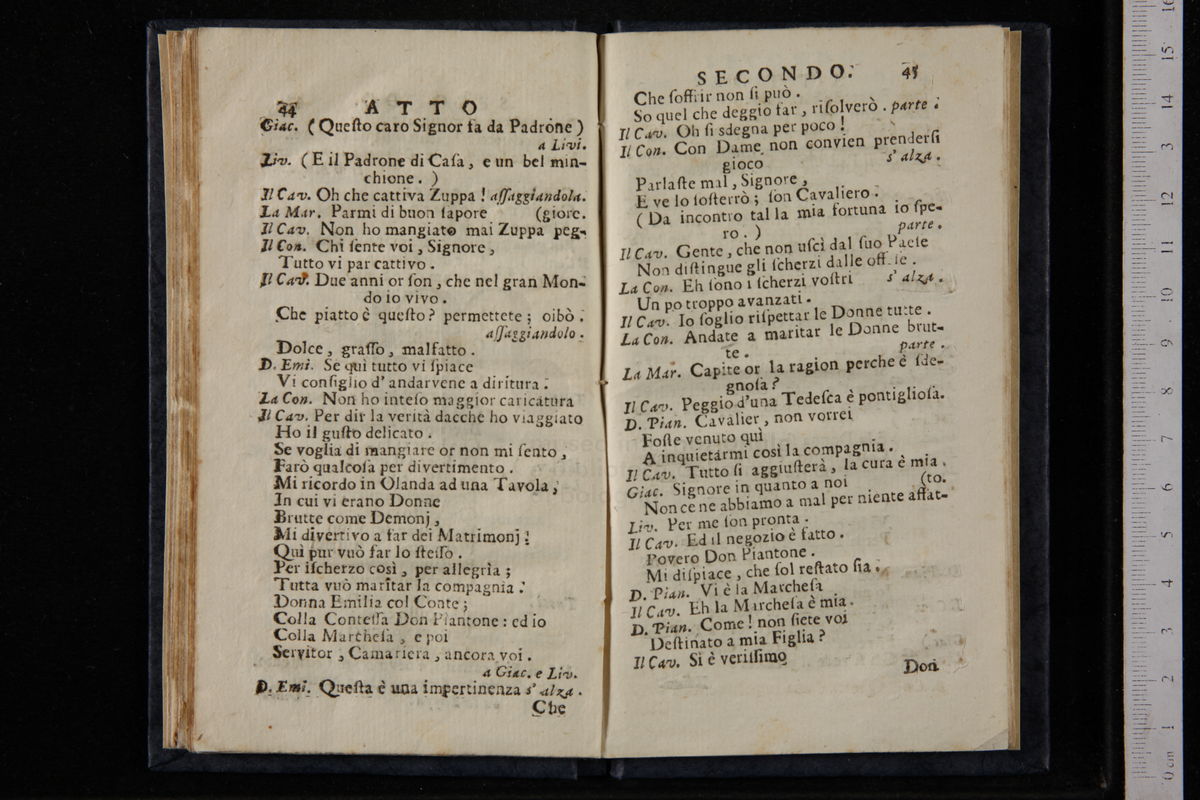 44 ATTO
Giac. (Queſto caro Signor fa da Padróne)
a Livi.
Liv. (E il Padrone di Caſa, e un bel min-
chione.)
Il Cav. Oh che cattiva Zuppa! aſſaggiandola.
La Mar. Parmi di buon ſapore (giore.
Il Cav. Non ho mangiato mai Zuppa peg-
Il Con. Chi ſente voi, Signore,
Tutto vi par cattivo.
Il Cav. Due anni or ſon, che nel gran Mon-
do io vivo.
Che piatto è queſto? permettete; oibò.
aſſaggiandolo.
Dolce, graſſo, malfatto.
D. Emi. Se quì tutto vi ſpiace
Vi configlio d'andarvene a diritura.
La Con. Non ho inteſo maggior caricatura
Il Cav. Per dir la verità dacche ho viaggiato
Ho il guſto delicato.
Se voglia di mangiare or non mi ſento,
Farò qualcoſa per divertimento.
Mi ricordo in Olanda ad una Tavola,
In cui vi erano Donne
Brutte come Demonj,
Mi divertivo a far dei Matrimonj:
Quì pur vuò far lo ſteſſo.
Per iſcherzo così, per allegrìa;
Tutta vuò maritar la compagnia:
Donna Emilia col Conte;
Colla Conteſſa Don Piantone: ed io
Colla Marcheſa, e poi
Servitor, Camariera, ancora voi.
a Giac. e Liv.
D. Emi. Queſta è una impertinenza s'alza.
Che
SECONDO. 45
Che ſoffrir non ſi può.
So quel che deggio far, riſolverò. parte.
Il Cav. Oh ſi sdegna per poco!
Il Con. Con Dame non convien prenderſi
gioco s'alza.
Parlaſte mal, Signore,
E ve lo ſoſterrò; ſon Cavaliero.
(Da incontro tal la mia fortuna io ſpe-
ro.) parte.
Il Cav. Gente, che non uſcì dal ſuo Paeſe
Non diſtingue gli ſcherzi dalle offeſe.
La Con. Eh ſono i ſcherzi voſtri s'alza.
Un po troppo avanzati.
Il Cav. Io ſoglio riſpettar le Donne tutte.
La Con. Andate a maritar le Donne brut-
te. parte.
La Mar. Capite or la ragion perche è ſde-
gnoſa?
Il Cav. Peggio d'una Tedeſca è pontiglioſa.
D. Pian. Cavalier, non vorrei
Foſte venuto quì
A inquietarmi così la compagnia.
Il Cav. Tutto ſi aggiuſterà, la cura è mia.
Giac. Signore in quanto a noi (to.
Non ce ne abbiamo a mal per niente affat-
Liv. Per me ſon pronta.
Il Cav. Ed il negozio è fatto.
Povero Don Piantone.
Mi diſpiace, che ſol reſtato ſia.
D. Pian. Vi è la Marcheſa
Il Cav. Eh la Marcheſa è mia.
D. Pian. Come! non ſiete voi
Deſtinato a mia Figlia?
Il Cav. Sì è veriſſimo
Don
0 cm 1 2 3 4 5 6 7 8 9 10 11 12 13 14 15 16